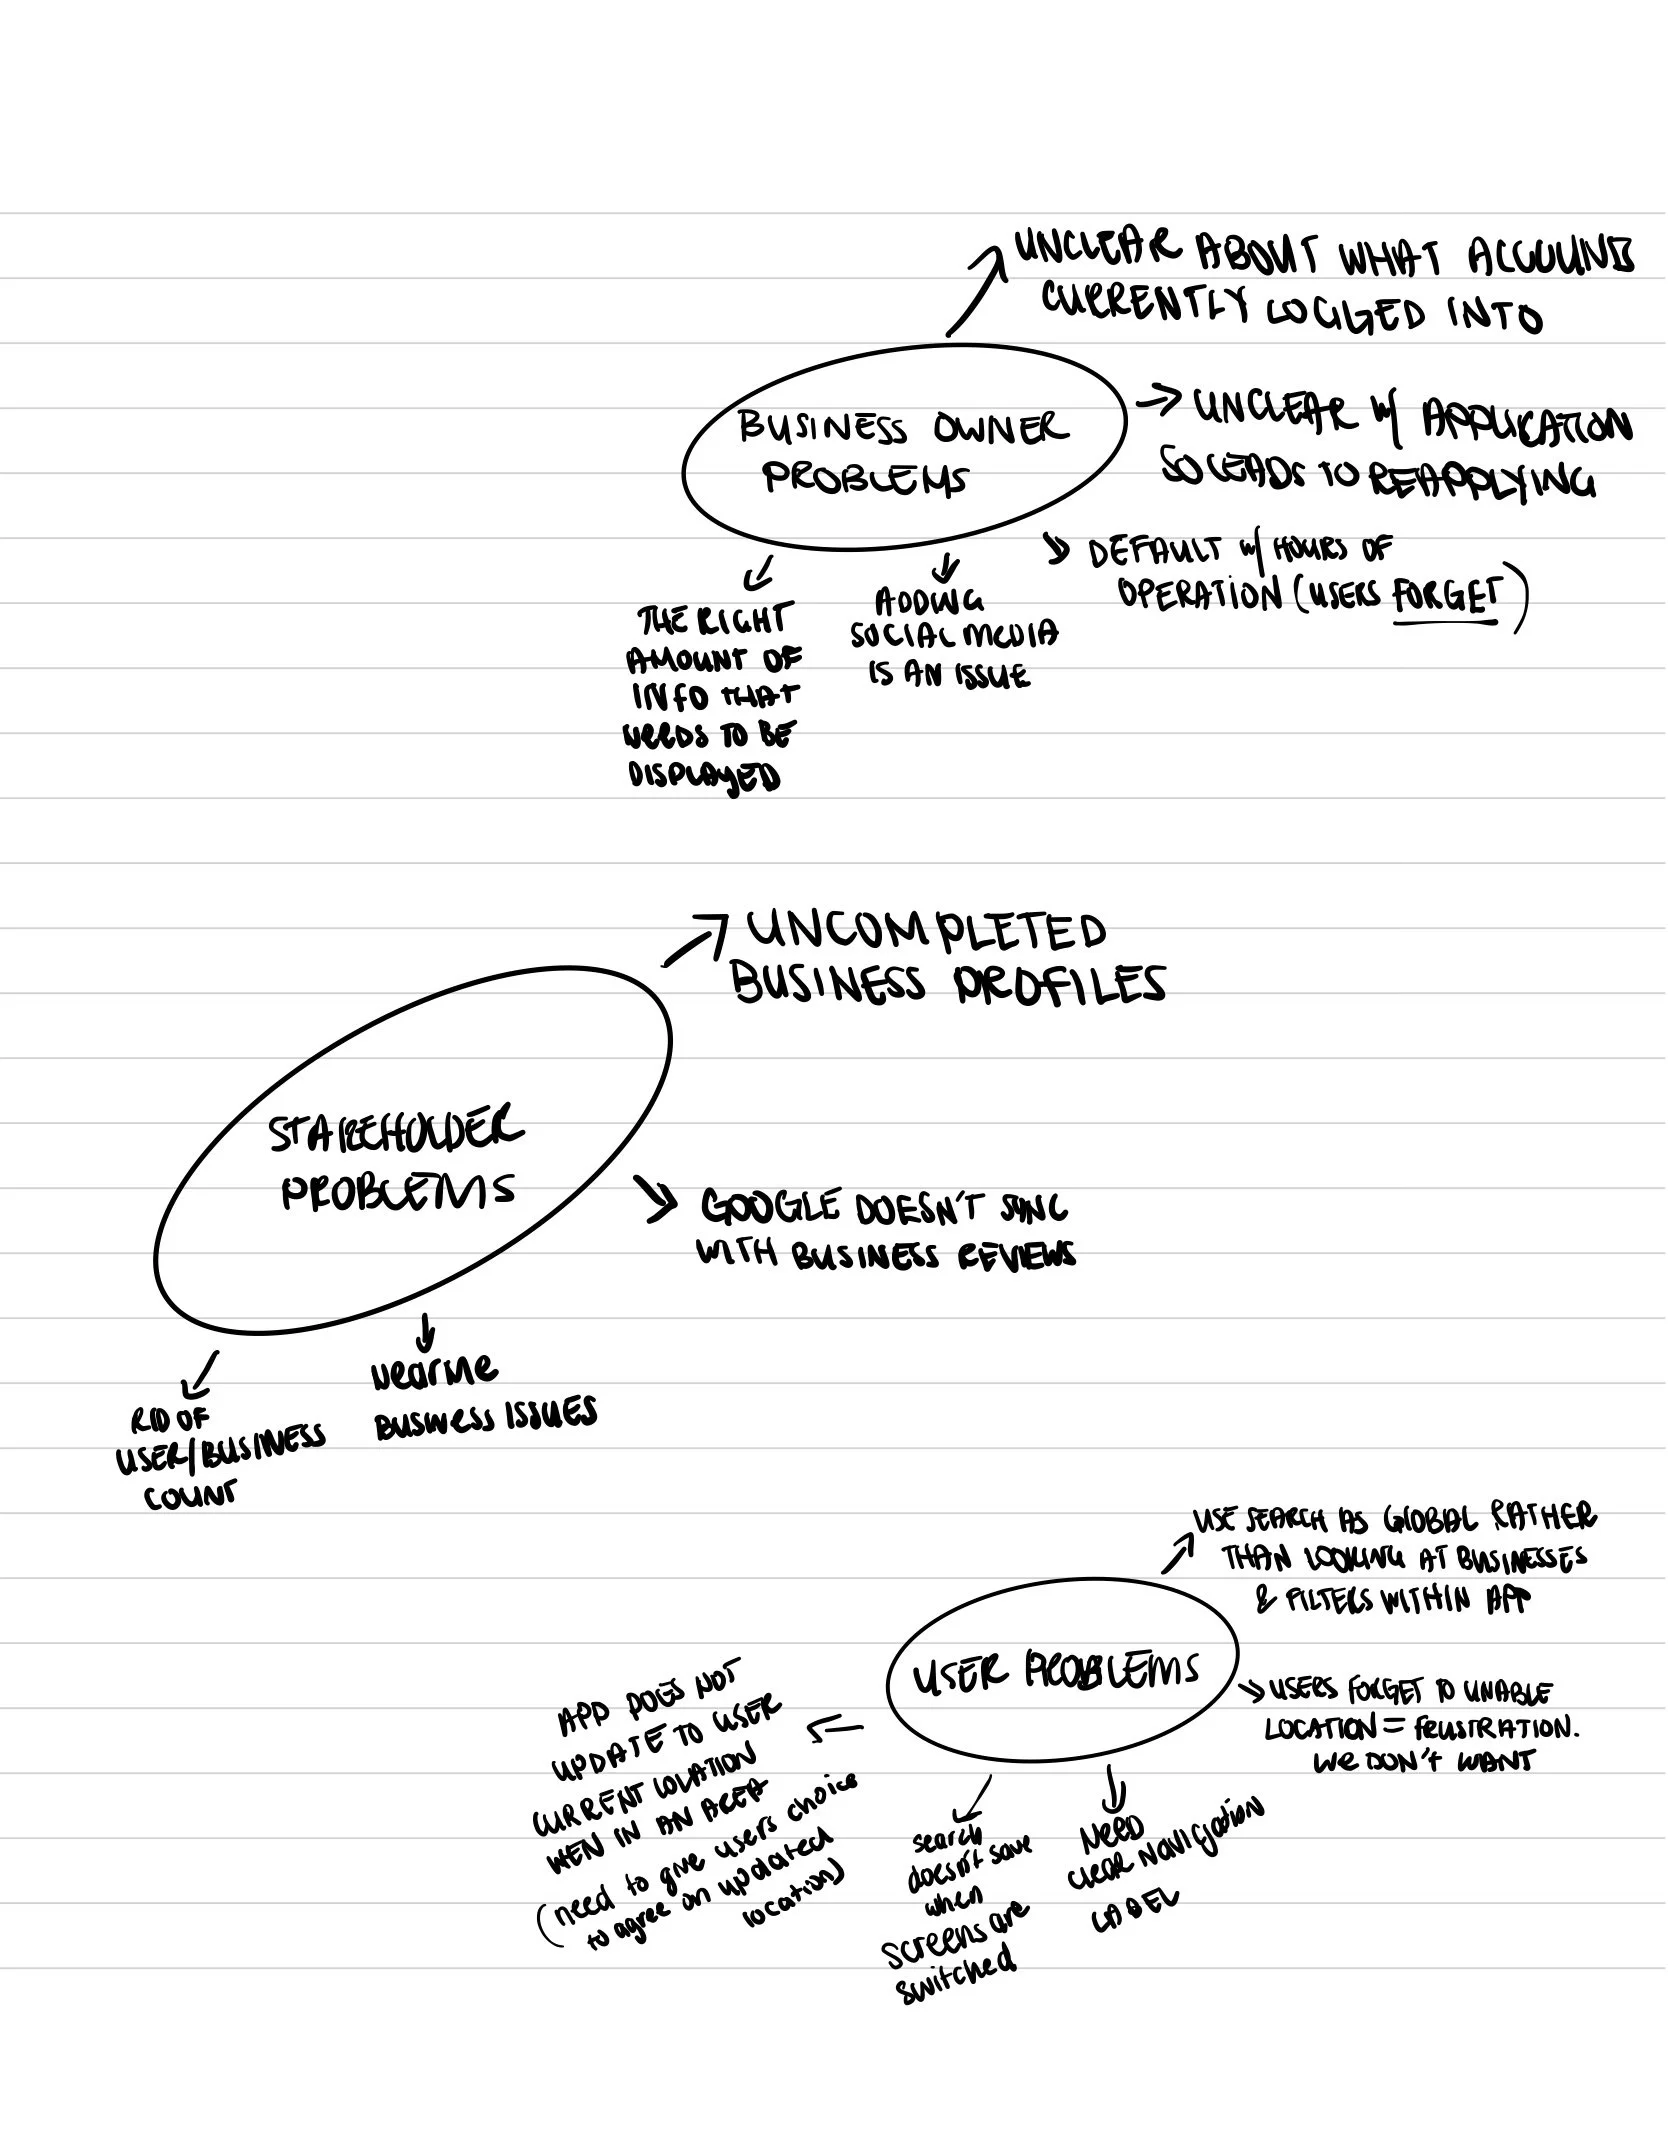 UNCLEAR ABOUT WHAT ACCOUNT
CURRENTLY LOGGED INTO
BUSINESS OWNER
PROBLEMS
UNCLEAR w/ APPLICATION
SO LEADS TO REAPPLYING
DEFAULT w/ HOURS OF
OPERATION (USERS FORGET)
THE RIGHT
AMOUNT OF
INFO THAT
NEEDS TO BE
DISPLAYED
ADDING
SOCIAL MEDIA
IS AN ISSUE
UNCOMPLETED
BUSINESS PROFILES
STAKEHOLDER
PROBLEMS
GOOGLE DOESN'T SYNC
WITH BUSINESS REVIEWS
RID OF
USER/BUSINESS
COUNT
NearMe
BUSINESS ISSUES
USE SEARCH AS GLOBAL RATHER
THAN LOOKING AT BUSINESSES
& FILTERS WITHIN APP
USER PROBLEMS
USERS FORGET TO UNABLE
LOCATION = FRUSTRATION.
We DON'T WANT
APP DOES NOT
UPDATE TO USER
CURRENT LOCATION
WEN IN AN AREA
(need to give users choice
to agree on updated
location)
search
doesn't save
when
screens are
switched
NEED
CLEAR NAVIGATION
LABEL